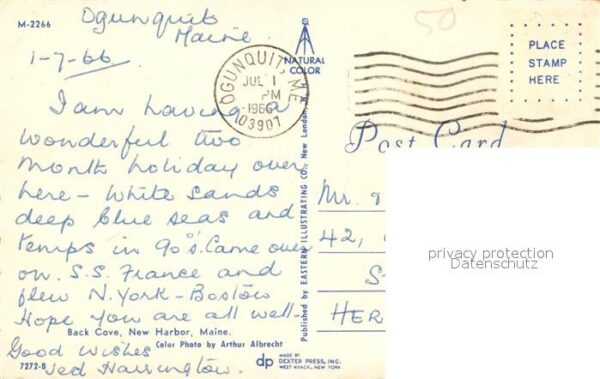 M-2266
Ogunquit
Maine.
1-7-66.
I am having a
wonderful two
month holiday over
here - White Sands
deep blue seas and
temps in 90's. Came over
on. S.S. France and
flew N.York - Boston
Hope you are all well -
Back Cove, New Harbor, Maine.
Color Photo by Arthur Albrecht
Good wishes
Ted Harrington.
7272-B
NATURAL
COLOR
OGUNQUIT, ME
JUL 1
PM
1966
03907
Published by EASTERN ILLUSTRATING CO., New London, N. H.
dp
MADE BY
DEXTER PRESS, INC.
WEST NYACK, NEW YORK
50
PLACE
STAMP
HERE
Post Card
Mr.
42,
S
HER
privacy protection
Datenschutz